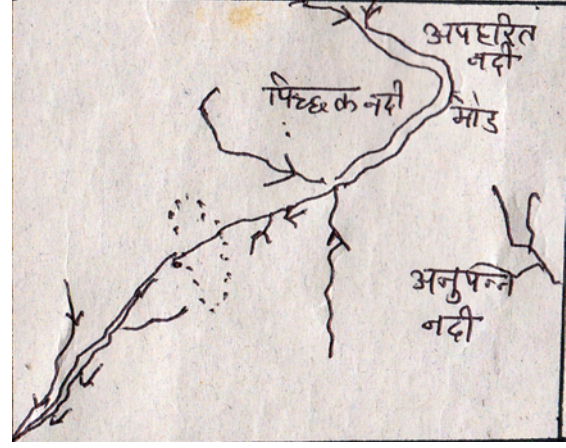 अपहरित
नदी
पिच्छक नदी
मोड
अनुपन्न
नदी